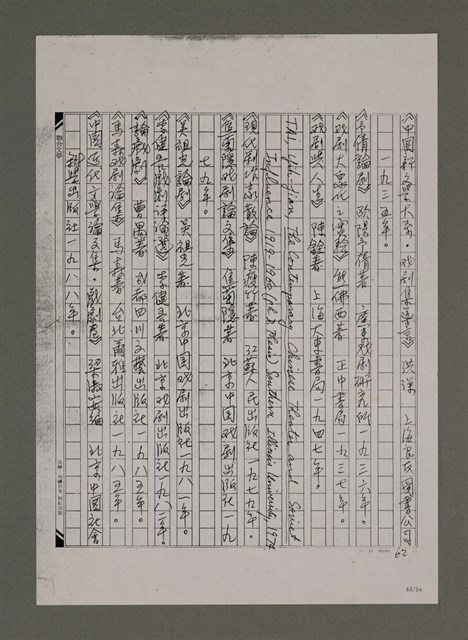 《中國新文學大系·戲劇集導言》 洪深 上海良友圖書公司
一九三五年。
《予倩論劇》 歐陽予倩著 廣東戲劇研究所一九三六年。
《戲劇大眾化之實驗》 熊佛西著 正中書局一九三七年。
《戲劇與人生》 陳銓著 上海大東書局一九四七年。
The Contemporary Chinese Theater and Soviet
Influence 1919-1960 (Ph.D. Thesis) Southern Illinois University, 1974
《現代劇作家散論》 陳瘦竹著 江蘇人民出版社一九七九年。
《焦菊隱戲劇論文集》 焦菊隱著 北京中國戏剧出版社一九
七九年。
《吳祖光論劇》 吳祖光著 北京中國戏剧出版社一九八一年。
《李健吾戲劇評論選》 李健吾著 北京戏剧出版社一九八二年。
《論戲劇》 曹禺著 成都四川文藝出版社一九八五年。
《馬森戲劇論集》 馬森著 台北爾雅出版社一九八五年。
《中國近代文學論文集·戲劇卷》 梁淑安編 北京中國社會
科學出版社一九八八年。
聯合文學
62
62/64